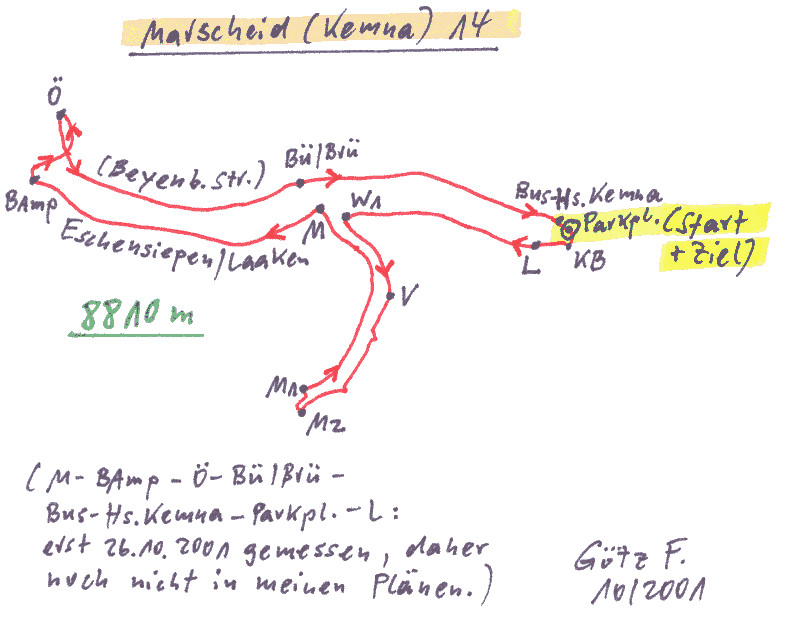 Marscheid (Kemna) 14
Ö
(Beyenb. Str.)
Bü/Brü
BAmp
Eschensiepen/Laaken
M
W1
Bus-Hs. Kemna
Parkpl. (Start
+ Ziel)
L
KB
V
8810 m
M1
M2
(M - BAmp - Ö - Bü/Brü -
Bus-Hs. Kemna - Parkpl. - L:
erst 26.10.2001 gemessen, daher
noch nicht in meinen Plänen.)
Götz F.
10/2001